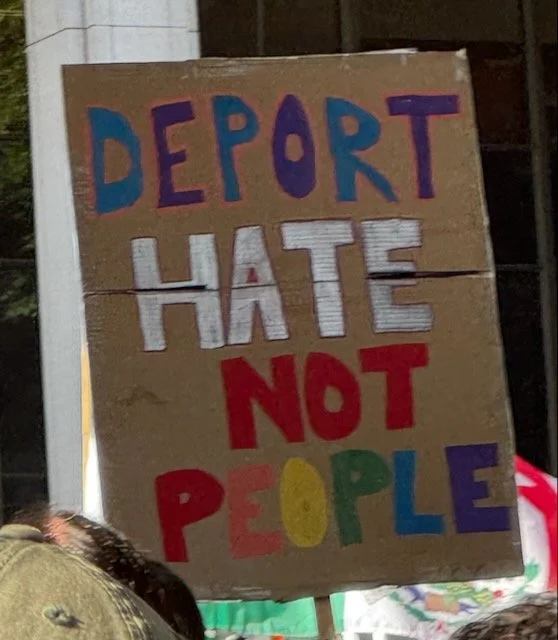 DEPORT
HATE
NOT
PEOPLE